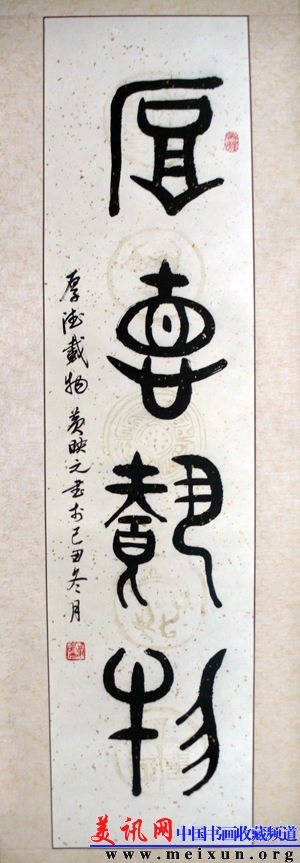 厚德載物
厚德載物 黄映元書於己丑冬月
美讯网 中国书画收藏频道
www.meixun.org